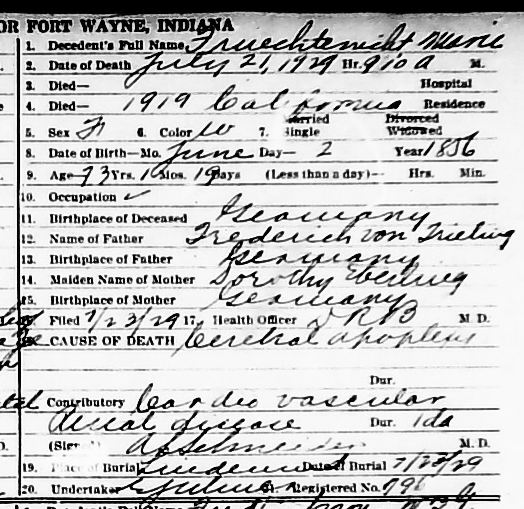 OR FORT WAYNE, INDIANA
1. Decedent's Full Name Fruechtenicht Marie
2. Date of Death July 21, 1929 Hr. 9 10 a M.
3. Died— Hospital
4. Died— 1919 California Residence
5. Sex F 6. Color W 7. Married Single Divorced Widowed
8. Date of Birth—Mo. June Day— 2 Year 1856
9. Age 73 Yrs. 1 Mos. 19 Days (Less than a day)— Hrs. Min.
10. Occupation ✓
11. Birthplace of Deceased Germany
12. Name of Father Frederich von
13. Birthplace of Father Germany
14. Maiden Name of Mother Dorothy
15. Birthplace of Mother Germany
Filed 7/23/29 17. Health Officer M. D.
CAUSE OF DEATH Cerebral apoplexy
Dur.
Contributory Cardio vascular
Renal disease Dur. 1da
(Signed) M. D.
19. Place of Burial Date of Burial 7/23/29
20. Undertaker Registered No. 796